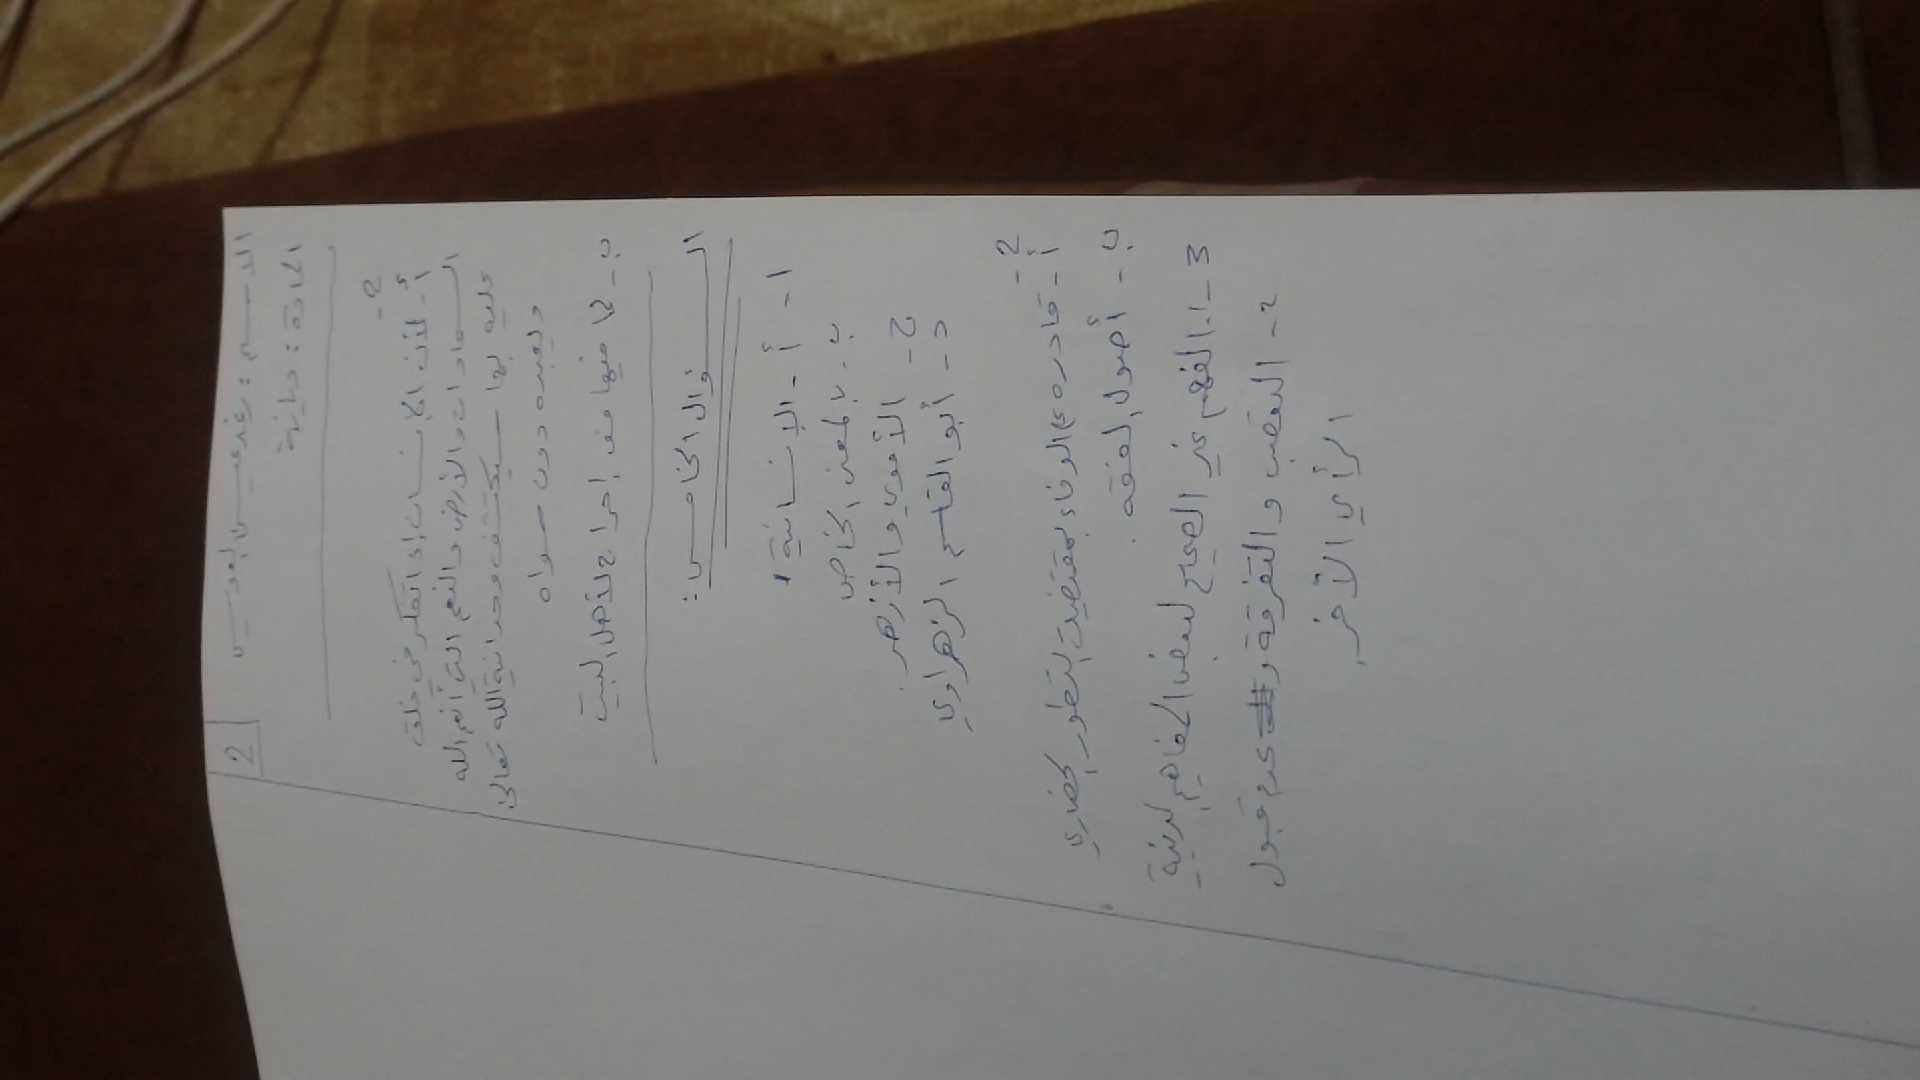 2
الاسم: غدير
المادة: ديانة
2-
أ- لأن الإنسان إذا تفكر في خلق
السماوات والأرض والنعم التي أنعم الله
عليه بها سيكتشف وحدانية الله تعالى
ويعبده دون سواه
ب- لما فيها من إحراج لأهل البيت
السؤال الخامس:
1- أ- الإنسانية
ب- بالمعنى الخاص
ج- الأموي والأزهر
د- أبو القاسم الزهراوي
2-
أ- قادرة على الوفاء بمقتضيات التطور الحضاري
ب- أصول الفقه.
3- 1- الفهم غير الصحيح لبعض المفاهيم الدينية
2- التعصب والتفرقة و عدم قبول
الرأي الآخر.